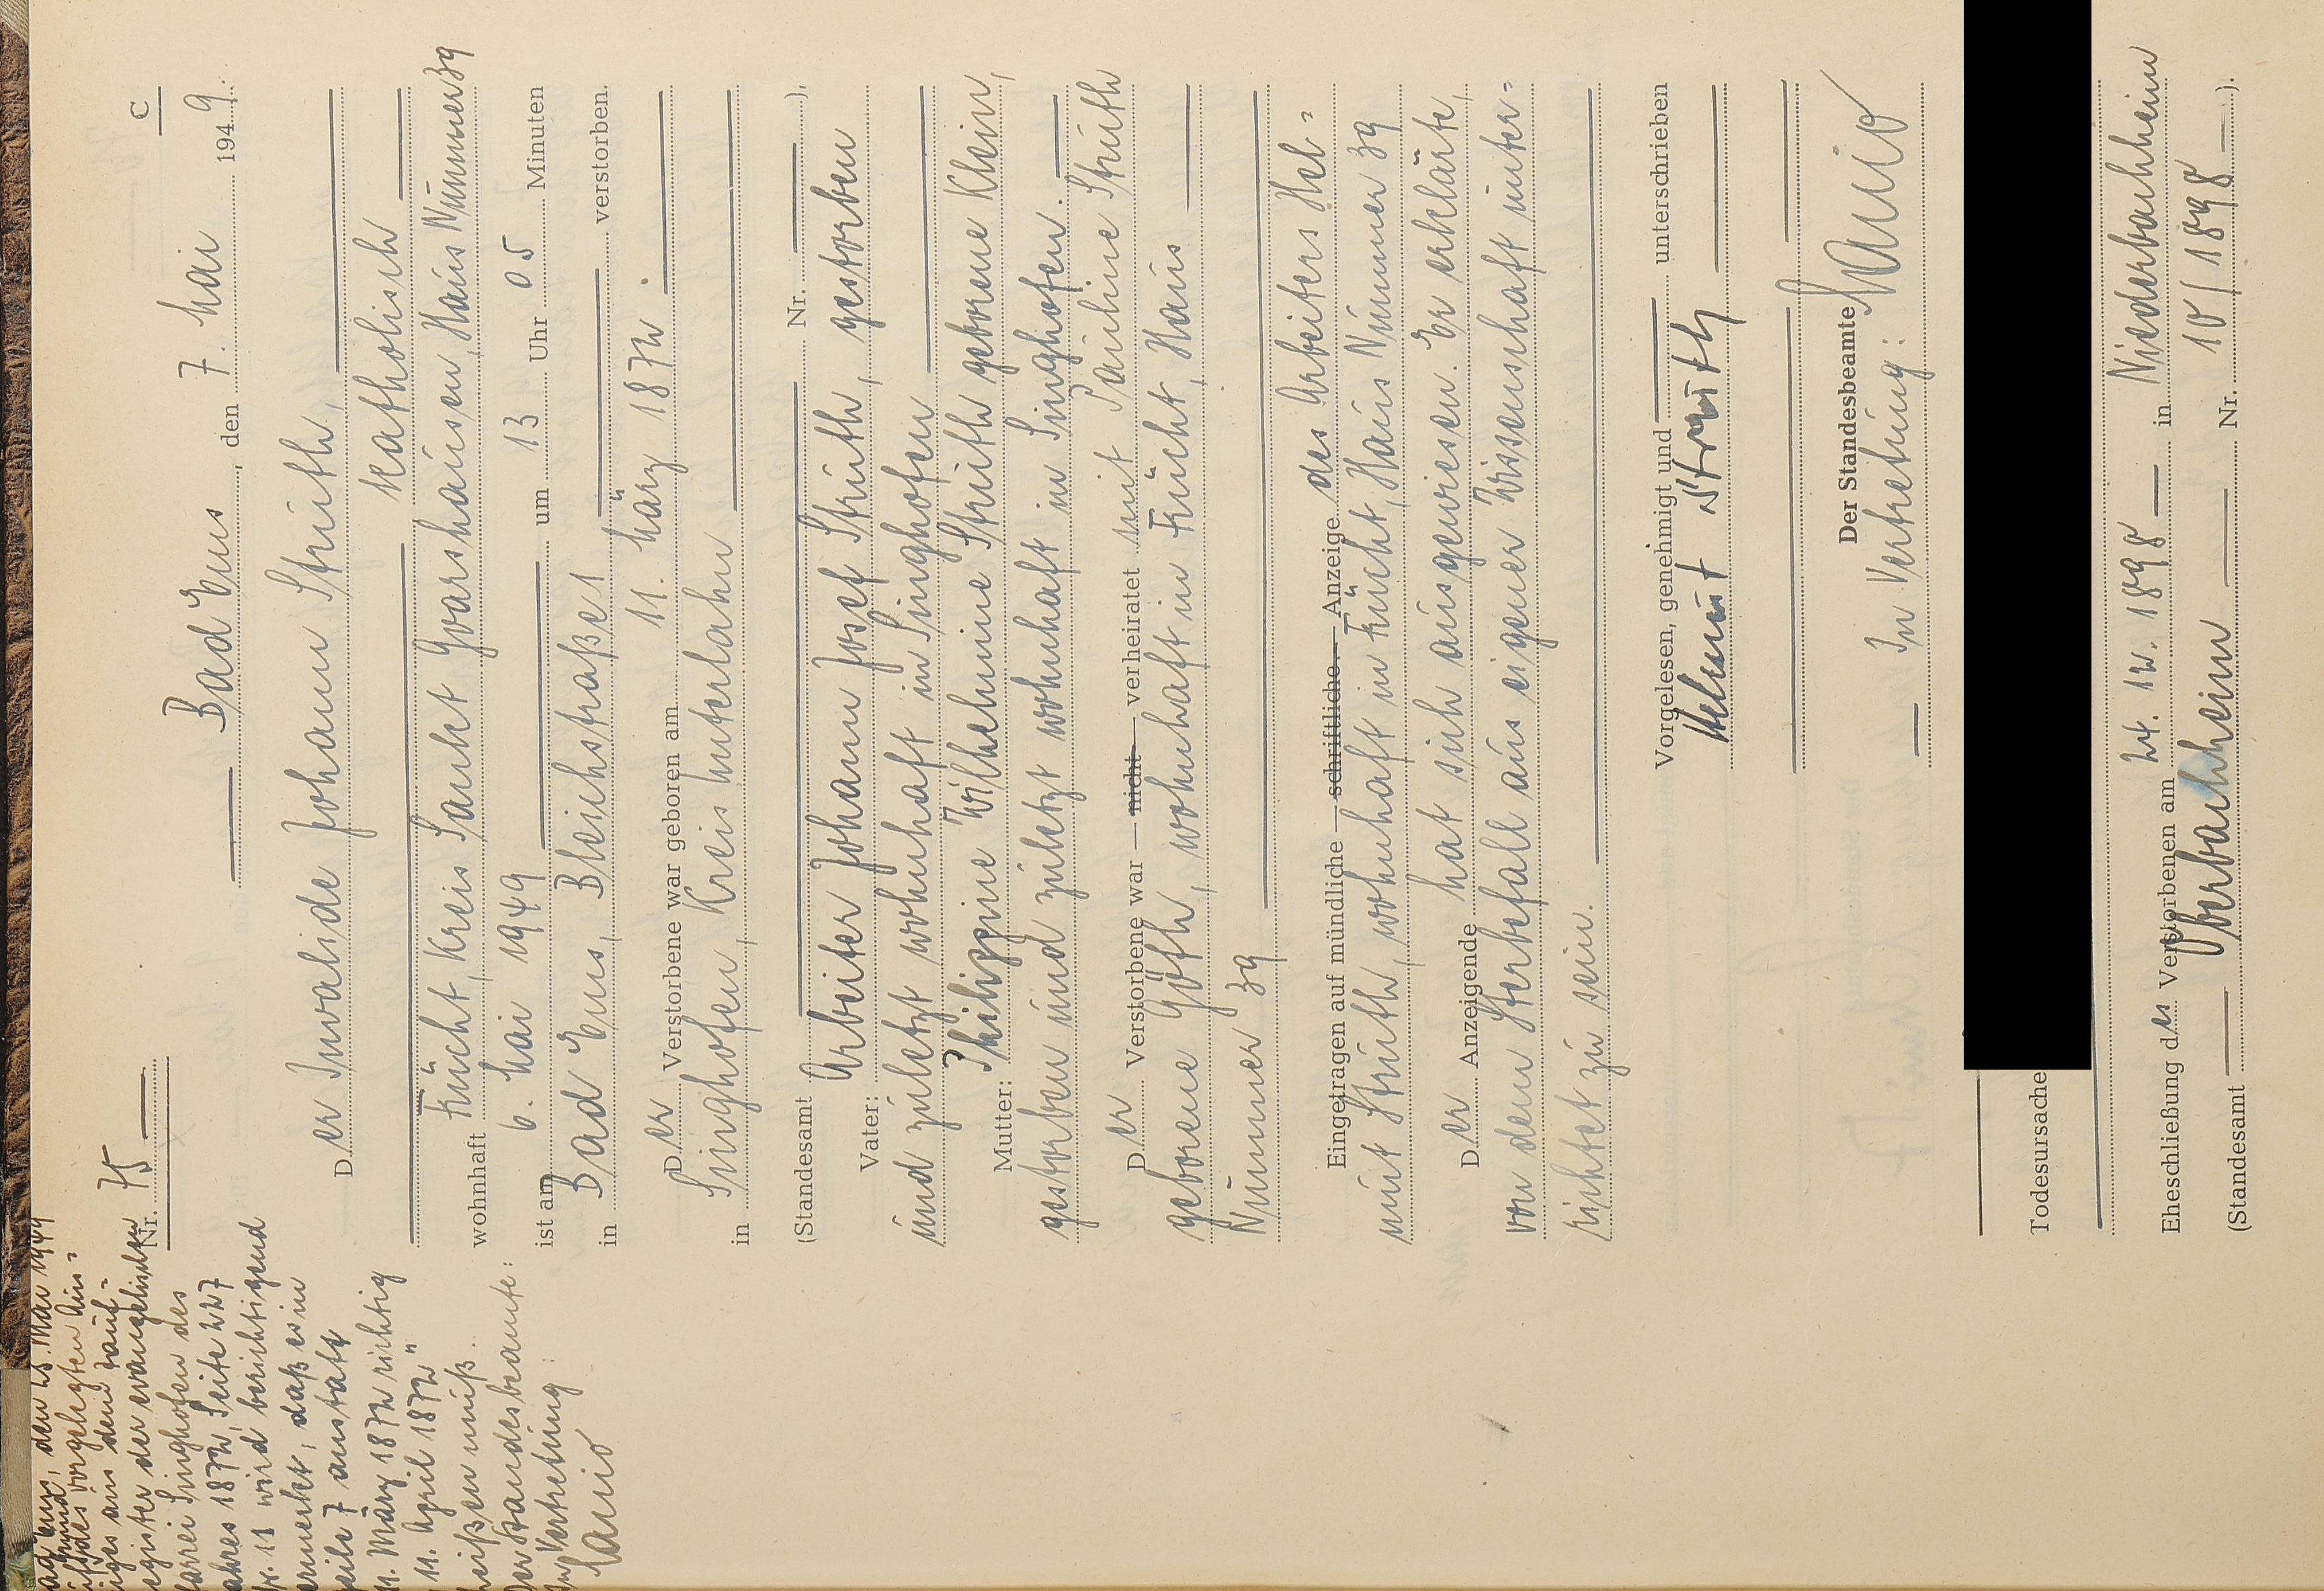 C
Nr. 75
Bad Ems, den 7. Mai 1949.
Der Invalide Johann Struth,
katholisch
wohnhaft Frücht, Kreis Sankt Goarshausen, Haus Nummer 39
ist am 6. Mai 1949 um 13 Uhr 05 Minuten
in Bad Ems, Bleichstraße 1 verstorben.
Der Verstorbene war geboren am 11. März 1872.
in Singhofen, Kreis Unterlahn
(Standesamt Nr. ),
Vater: Arbeiter Johann Josef Struth, gestorben
und zuletzt wohnhaft in Singhofen
Mutter: Philippine Wilhelmine Struth geborene Klein,
gestorben und zuletzt wohnhaft in Singhofen.
Der Verstorbene war — nicht — verheiratet mit Pauline Struth
geborene Göth, wohnhaft in Frücht, Haus
Nummer 39
Eingetragen auf mündliche — schriftliche — Anzeige des Arbeiters Hel=
mut Struth, wohnhaft in Frücht, Haus Nummer 39
Der Anzeigende hat sich ausgewiesen. Er erklärte,
von dem Sterbefall aus eigener Wissenschaft unter=
richtet zu sein.
Vorgelesen, genehmigt und unterschrieben
Helmut Struth
Der Standesbeamte
In Vertretung:
Todesursache
Eheschließung des Verstorbenen am 24. 12. 1898 in Niederbachheim
(Standesamt Oberbachheim Nr. 10/1898 ).
Ems, den 25. Mai 1949
des vorgelegten Aus=
aus dem Tauf=
der evangelischen
Singhofen des
1872, Seite 227
11 wird berichtigend
, daß es in
7 anstatt
11. März 1872 richtig
11. April 1872"
heißen muß.
Der Standesbeamte:
In Vertretung: